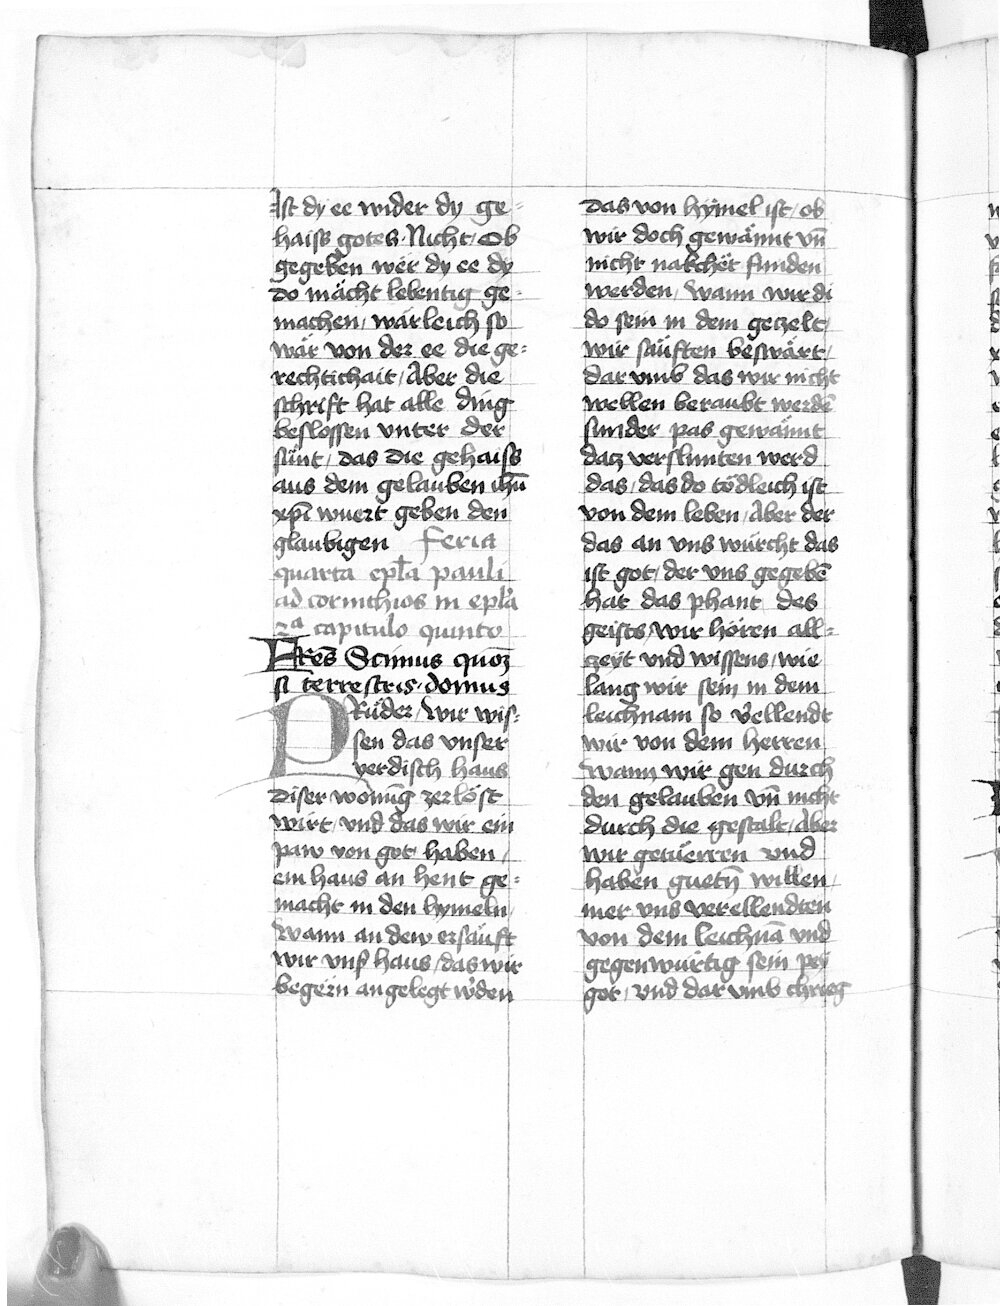 Ist dy ee wider dy ge-
haiss gotes. Nicht / Ob
gegeben wër dy ee dy
do mächt lebentig ge-
machen / wärleich so
wär von der ee die ge-
rechtichait / Aber die
schrift hat alle ding
beslossen vnter der
sünt / das die gehaiss
aus dem gelauben ihū
xpī wuert geben den
glaubigen Feria
quarta epl̄a pauli
ad corinthios in epl̄a
2ᵃ capitulo quinto
FRes̄ Scimus quoꝫ
si terrestris domus
PRüder / Wir wis-
sen das vnser
yerdisch haus
diser wonūg zerlöst
wirt / vnd das wir ein
paw von got haben /
ein haus an hent ge-
macht in den hymeln /
Wann an dem ersäuft
wir vnß haus / das wir
begern angelegt wͤden
das von hymel ist / ob
wir doch gewännt vn̄
nicht nakchët funden
werden / Wann wir di
do sein in dem geczelt /
wir säuften beswärt /
dar vmb das wir nicht
wellen beraubt werdē
sunder pas gewännt
daz verslunten werd
das / das do tödleich ist
von dem leben / Aber der
das an vns würcht das
ist got / der vns gegebē
hat das phant des
geists / wir hören all-
czeyt vnd wissens / wie
lang wir sein in dem
leichnam so vͤellendt
wir von dem herren
Wann wir gen durch
den gelauben vn̄ nicht
durch die gestalt / Aber
wir getüerren vnd
haben guetn̄ willen /
mer vns verellendten
von dem leichnā vnd
gegenwürtig sein pey
got / vnd dar vmb chrieg